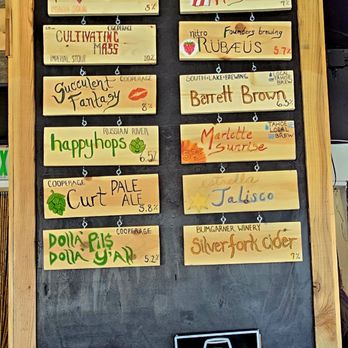 5%
COOPERAGE
CULTIVATING
MASS
IMPERIAL STOUT
10%
COOPERAGE
Succulent
Fantasy
8%
RUSSIAN RIVER
happyhops
6.5%
COOPERAGE
Curt PALE
ALE
5.8%
COOPERAGE
Dolla' Pils
Dolla Y'all
5.2%
nitro Founders brewing
RUBÆUS
5.7%
SOUTH-LAKE-BREWING
LOCAL
BREW
Barrett Brown
6.3%
Marlette
Sunrise
TAHOE
LOCAL
BREW
estrella
Jalisco
BUMGARNER WINERY
Silverfork cider
7%